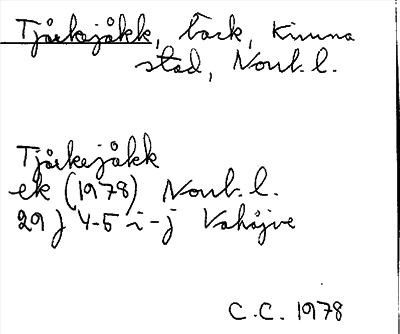 Tjårkejåkk, bäck, Kiruna
stad, Norrb. l.
Tjårkejåkk
ek (1978) Norrb. l.
29 J 4-5 i-j Vahåjve
C.C. 1978